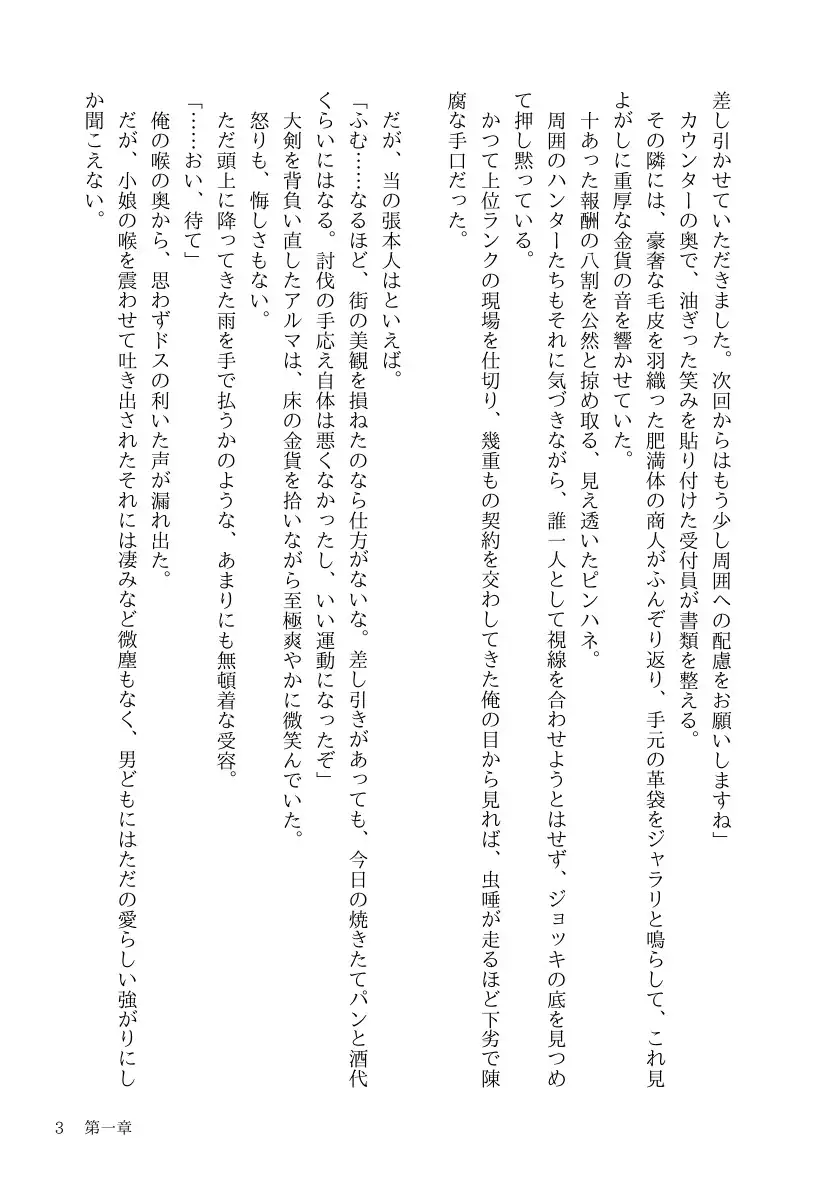 差し引かせていただきました。次回からはもう少し周囲への配慮をお願いしますね」
カウンターの奥で、油ぎった笑みを貼り付けた受付員が書類を整える。
その隣には、豪奢な毛皮を羽織った肥満体の商人がふんぞり返り、手元の革袋をジャラリと鳴らして、これ見
よがしに重厚な金貨の音を響かせていた。
十あった報酬の八割を公然と掠め取る、見え透いたピンハネ。
周囲のハンターたちもそれに気づきながら、誰一人として視線を合わせようとはせず、ジョッキの底を見つめ
て押し黙っている。
かつて上位ランクの現場を仕切り、幾重もの契約を交わしてきた俺の目から見れば、虫唾が走るほど下劣で陳
腐な手口だった。
だが、当の張本人はといえば。
「ふむ……なるほど、街の美観を損ねたのなら仕方がないな。差し引きがあっても、今日の焼きたてパンと酒代
くらいにはなる。討伐の手応え自体は悪くなかったし、いい運動になったぞ」
大剣を背負い直したアルマは、床の金貨を拾いながら至極爽やかに微笑んでいた。
怒りも、悔しさもない。
ただ頭上に降ってきた雨を手で払うかのような、あまりにも無頓着な受容。
「……おい、待て」
俺の喉の奥から、思わずドスの利いた声が漏れ出た。
だが、小娘の喉を震わせて吐き出されたそれには凄みなど微塵もなく、男どもにはただの愛らしい強がりにし
か聞こえない。
3 第一章